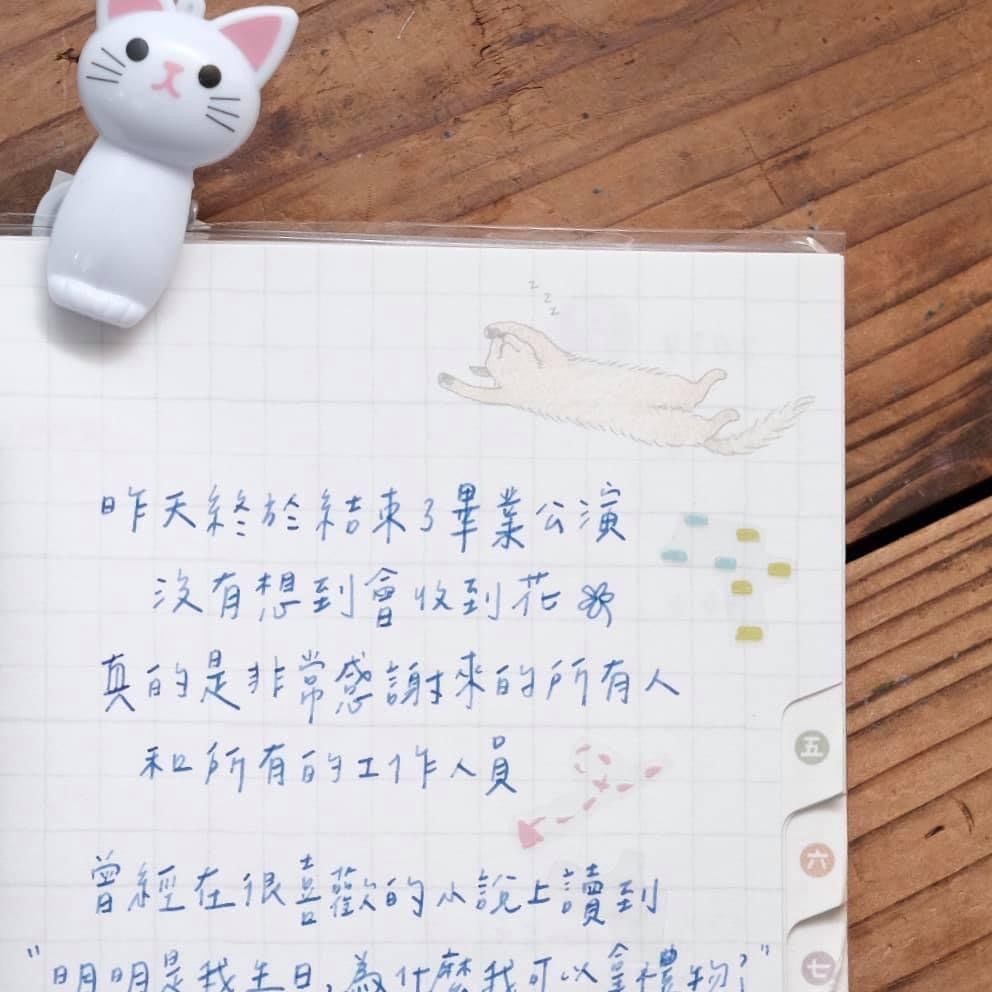 z
z
z
昨天終於結束了畢業公演
沒有想到會收到花
真的是非常感謝來的所有人
和所有的工作人員
曾經在很喜歡的小說上讀到
"明明是我生日,為什麼我可以拿禮物?"
五
六
七